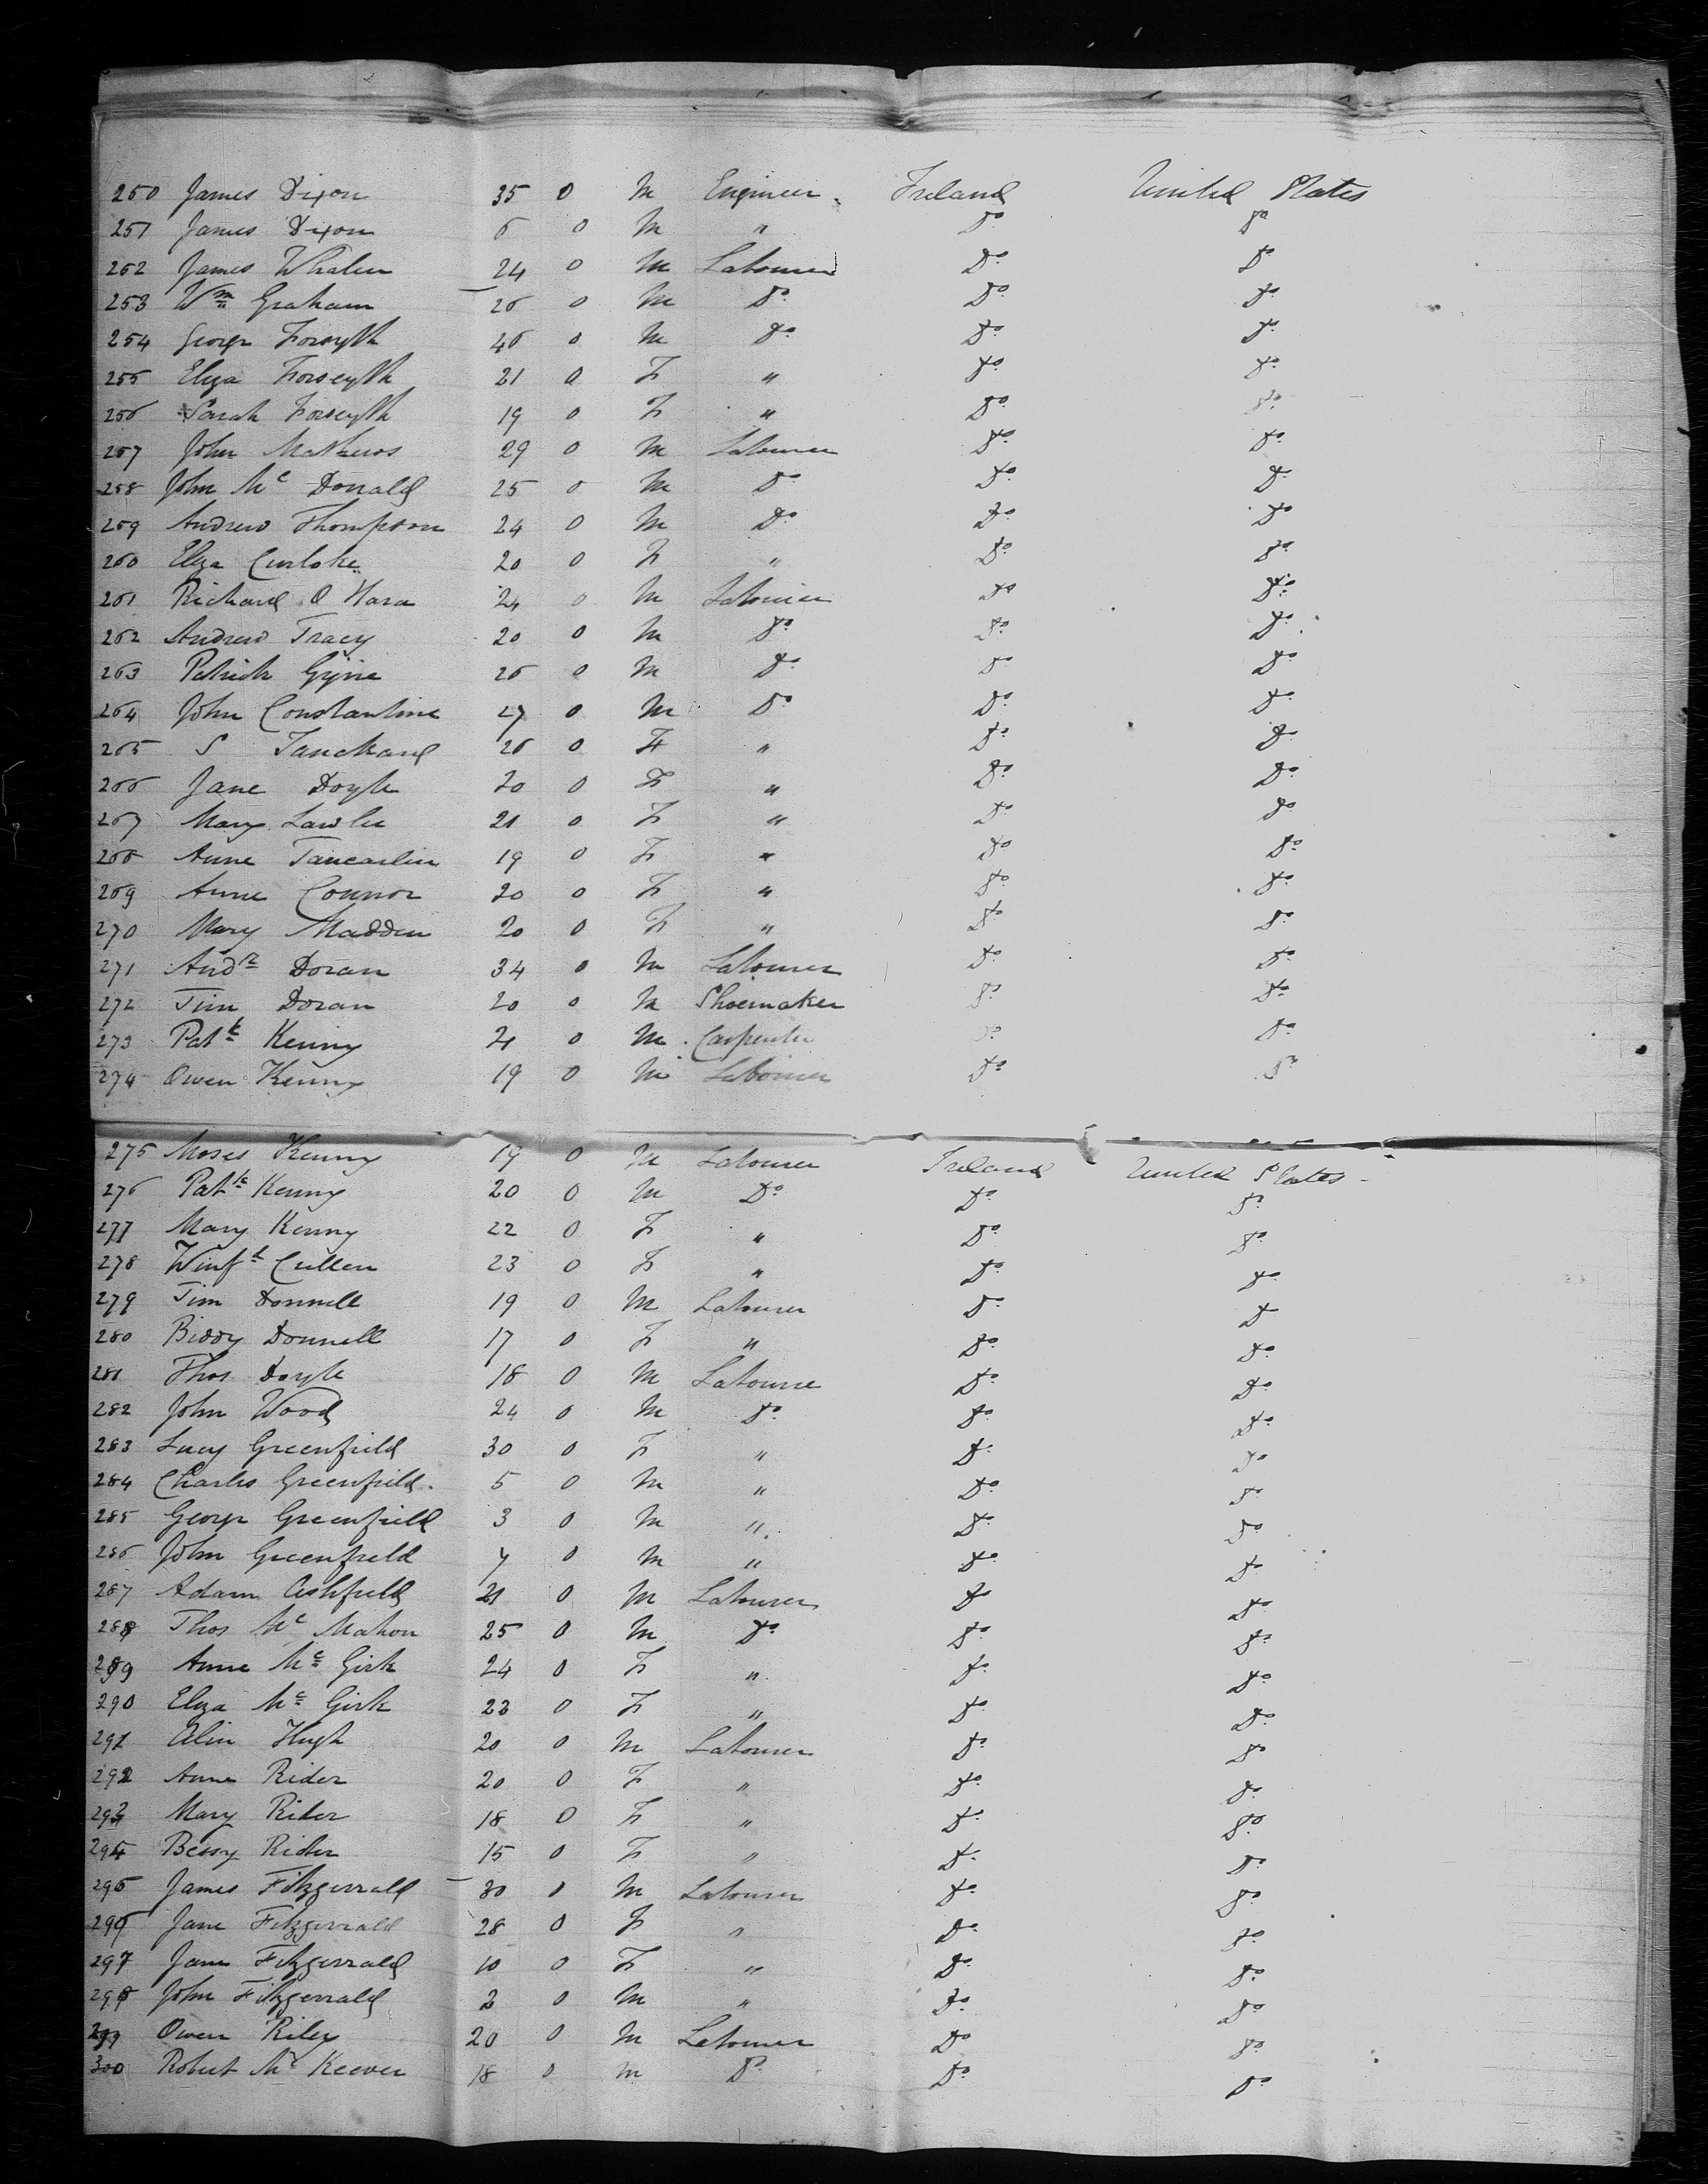 250 James Dixon 35 0 M Engineer. Ireland United States
251 James Dixon 6 0 M " Do Do
252 James Whalen 24 0 M Labourer Do Do
253 Wm Graham 26 0 M Do Do Do
254 George Forsyth 46 0 M Do Do Do
255 Eliza Forseyth 21 0 F " Do Do
256 Sarah Forseyth 19 0 F " Do Do
257 John Mathews 29 0 M Labourer Do Do
258 John Mc Donald 25 0 M Do Do Do
259 Andrew Thompson 24 0 M Do Do Do
260 Eliza 20 0 F " Do Do
261 Richard O Hara 24 0 M Labourer Do Do
262 Andrew Tracy 20 0 M Do Do Do
263 Patrick 26 0 M Do Do Do
264 John Constantine 27 0 M Do Do Do
265 S Tanckard 26 0 F " Do Do
266 Jane Doyle 20 0 F " Do Do
267 Mary Lawler 21 0 F " Do Do
268 Anne 19 0 F " Do Do
269 Anne Connor 20 0 F " Do Do
270 Mary Madden 20 0 F " Do Do
271 Andw Doran 34 0 M Labourer Do Do
272 Tim Doran 20 0 M Shoemaker Do Do
273 Patk Kenny 21 0 M Carpenter Do Do
274 Owen Kenny 19 0 M Labourer Do Do
275 Moses Kenny 19 0 M Labourer Ireland United States
276 Patk Kenny 20 0 M Do Do Do
277 Mary Kenny 22 0 F " Do Do
278 Cullen 23 0 F " Do Do
279 Tim Donnell 19 0 M Labourer Do Do
280 Biddy Donnell 17 0 F " Do Do
281 Thos Doyle 18 0 M Labourer Do Do
282 John Wood 24 0 M Do Do Do
283 Lucy Greenfield 30 0 F " Do Do
284 Charles Greenfield 5 0 M " Do Do
285 George Greenfield 3 0 M " Do Do
286 John Greenfield 7 0 M " Do Do
287 Adam Ashfield 21 0 M Labourer Do Do
288 Thos Mc Mahon 25 0 M Do Do Do
289 Anne Mc Girk 24 0 F " Do Do
290 Eliza Mc Girk 23 0 F " Do Do
291 Hugh 20 0 M Labourer Do Do
292 Anne Rider 20 0 F " Do Do
293 Mary Rider 18 0 F " Do Do
294 Bessy Rider 15 0 F " Do Do
295 James Fitzgerrald 30 0 M Labourer Do Do
296 Jane Fitzgerrald 28 0 F " Do Do
297 Jane Fitzgerrald 10 0 F " Do Do
298 John Fitzgerrald 2 0 M " Do Do
299 Owen Riley 20 0 M Labourer Do Do
300 Robert Mc Keever 18 0 M Do Do Do